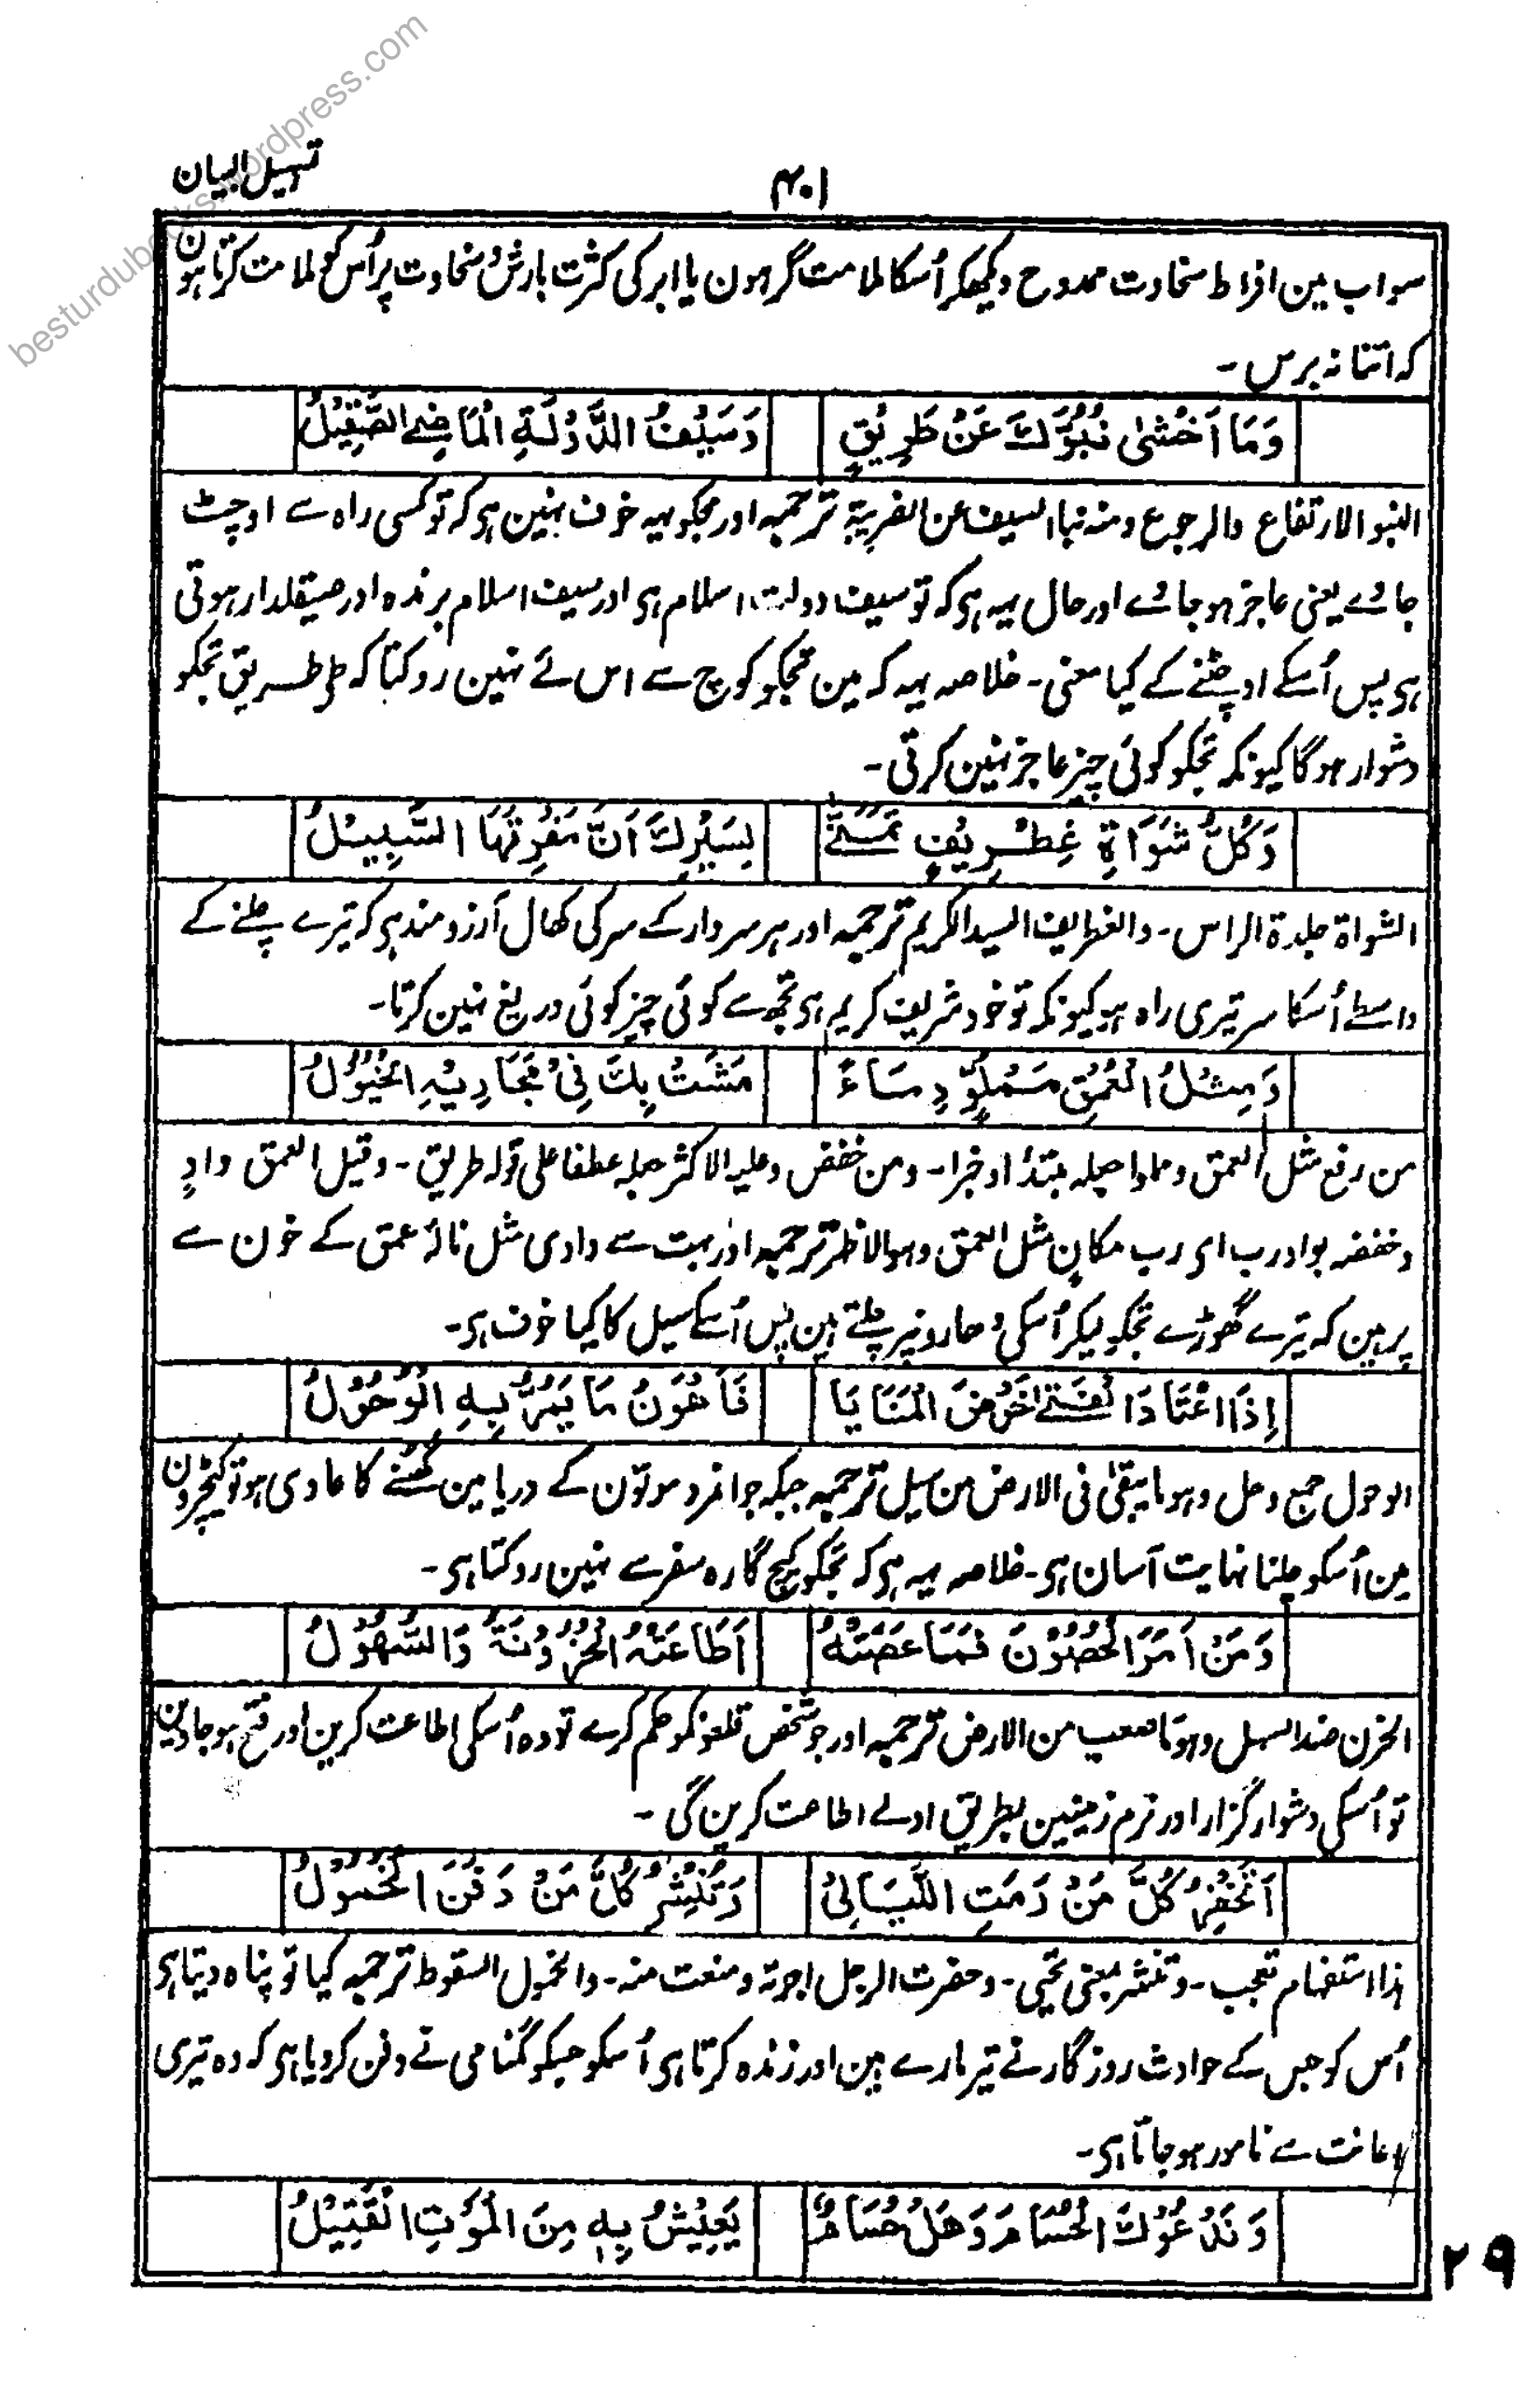 besturdubooks.wordpress.com
تسہیل البیان
۴۰۱
سو اب مین افراط سخاوت ممدوح دیکھکر اُسکا ملامت گر ہون یا ابر کی کثرت بارش و سخاوت پر اُس کو ملامت کرتا ہون
کہ اتنا نہ برس ۔
وَمَا اَخْشٰی نُبُوَّكَ عَنْ طَرِيْقٍ وَسَيْفُ الدَّوْلَةِ الْمَاضِی الصَّقِيْلُ
النبو الارتفاع والرجوع ومنہ نبا السیف عن الضریبۃ ترجمہ اور مجکو یہہ خوف نہین ہی کہ تو کسی راہ سے اوچٹ
جاوے یعنی عاجز ہو جاوے اور حال یہہ ہی کہ تو سیف دولت اسلام ہی اور سیف اسلام برندہ اور صیقلدار ہوتی
ہی پس اُسکے اوچٹنے کے کیا معنی ۔ خلاصہ یہہ کہ مین تجکو کوچ سے اس لئے نہین روکتا کہ طی طریق تجکو
دشوار ہوگا کیونکہ تجکو کوئی چیز عاجز نہین کرتی ۔
وَكُلُّ شَوَاةِ غِطْرِيْفٍ تَمَنّٰی لِسَيْرِكَ اَنَّ مَفْرِقَهَا السَّبِيْلُ
الشواۃ جلدۃ الراس ۔ والغطریف السید الکریم ترجمہ اور ہر سردار کے سر کی کھال آرزومند ہی کہ تیرے چلنے کے
واسطے اُسکا سر تیری راہ ہو کیونکہ تو خود شریف کریم ہی تجھ سے کوئی چیز کوئی دریغ نہین کرتا ۔
وَمِثْلُ الْعَمْقِ مَمْلُوٍّ دِمَاءً مَشَتْ بِكَ فِیْ مَجَارِيْهِ الْخُيُوْلُ
من رفع مثل العمق ومملوا جعلہ مبتدأ وخبرا ۔ ومن خفض وعلیہ الاکثر جعلہ عطفا علی قولہ طریق ۔ وقیل العمق وادٍ
وخفضہ بواو رب ای رب مکان مثل العمق وہو الاظہر ترجمہ اور بہت سے وادی مثل نالۂ عمق کے خون سے
پر ہین کہ تیرے گھوڑے تجکو لیکر اُسکی دھارونپر چلتے ہین پس اُسکے سیل کا کیا خوف ہی ۔
اِذَا اعْتَادَ الْفَتٰی خَوْضَ الْمَنَايَا فَاَهْوَنُ مَا يَمُرُّ بِهِ الْوُحُوْلُ
الوحول جمع وحل وہو ما یبقیٰ فی الارض من سیل ترجمہ جبکہ جوانمرد موتون کے دریا مین گھسنے کا عادی ہو تو کیچڑون
مین اُسکو چلنا نہایت آسان ہی ۔ خلاصہ یہہ ہی کہ تجکو کیچ گارہ سفر سے نہین روکتا ہی ۔
وَمَنْ اَمَرَ الْحُصُوْنَ فَمَا عَصَتْهُ اَطَاعَتْهُ الْحُزُوْنَةُ وَالسُّهُوْلُ
الحزن ضد السہل وہو ما صعب من الارض ترجمہ اور جو شخص قلعونکو حکم کرے تو وہ اُسکی اطاعت کرین اور فتح ہو جاوین
تو اُسکی دشوار گزار اور نرم زمینین بطریق اولے اطاعت کرین گی ۔
اَتَخْفِرُ كُلَّ مَنْ رَمَتِ اللَّيَالِیْ وَتُنْشِرُ كُلَّ مَنْ دَفَنَ الْخُمُوْلُ
ہذا استفہام تعجب ۔ وتنشر بمعنی تحیی ۔ وخفرت الرجل اجرتہ ومنعت منہ ۔ والخمول السقوط ترجمہ کیا تو پناہ دیتا ہی
اُس کو جس کے حوادث روزگار نے تیر مارے ہین اور زندہ کرتا ہی اُسکو جسکو گمنامی نے دفن کردیا ہی کہ وہ تیری
اعانت سے نامور ہو جاتا ہی ۔
وَنَدْعُوْكَ الْحُسَامَ وَهَلْ حُسَامٌ يَعِيْشُ بِهٖ مِنَ الْمَوْتِ الْقَتِيْلُ
۲۹